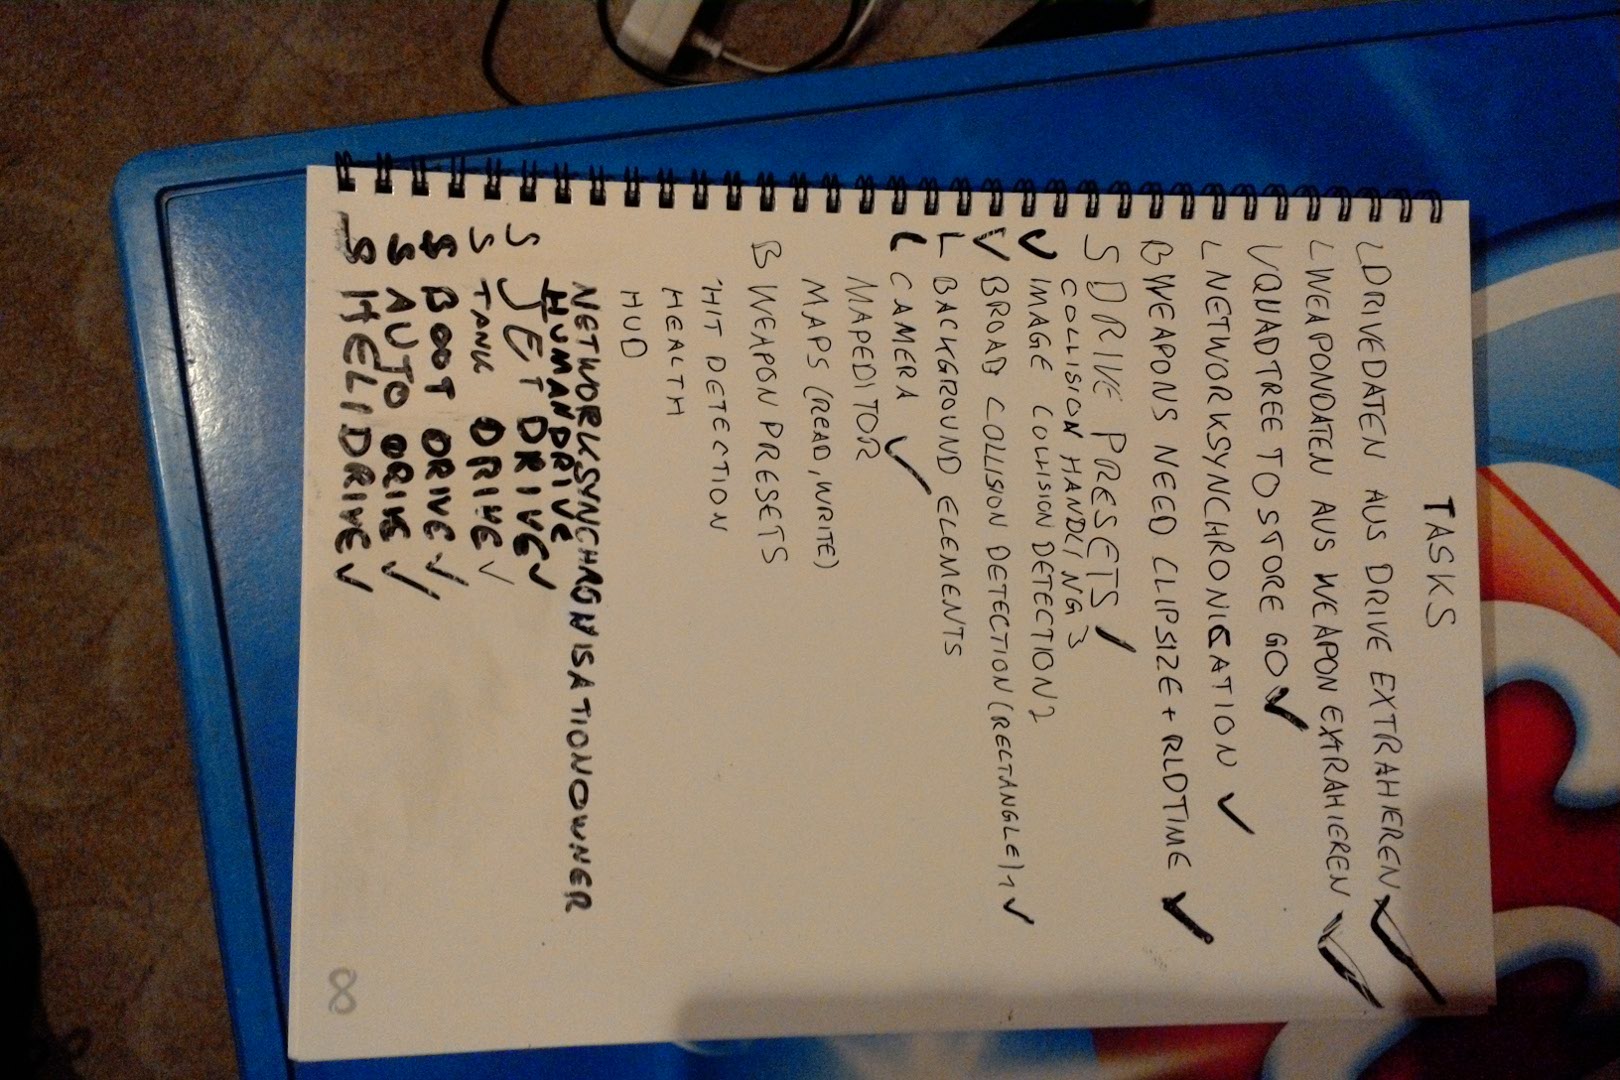 TASKS
L DRIVEDATEN AUS DRIVE EXTRAHIEREN ✓
L WEAPONDATEN AUS WEAPON EXTRAHIEREN ✓
V QUADTREE TO STORE GO ✓
L NETWORKSYNCHRONICATION ✓
B WEAPONS NEED CLIPSIZE + RLDTIME ✓
S DRIVE PRESETS ✓
COLLISION HANDLING 3
V IMAGE COLLISION DETECTION 2
V BROAD COLLISION DETECTION (RECTANGLE) 1 ✓
L BACKGROUND ELEMENTS
L CAMERA ✓
MAPEDITOR
MAPS (READ, WRITE)
B WEAPON PRESETS
HIT DETECTION
HEALTH
HUD
NETWORKSYNCHRONISATIONOWNER
HUMANDRIVE
S JET DRIVE ✓
S TANK DRIVE ✓
S BOOT DRIVE ✓
S AUTO DRIVE ✓
S HELI DRIVE ✓
∞